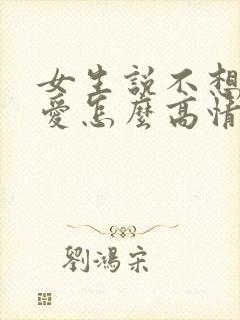 女生說不想
愛怎麼高情
劉鴻宋